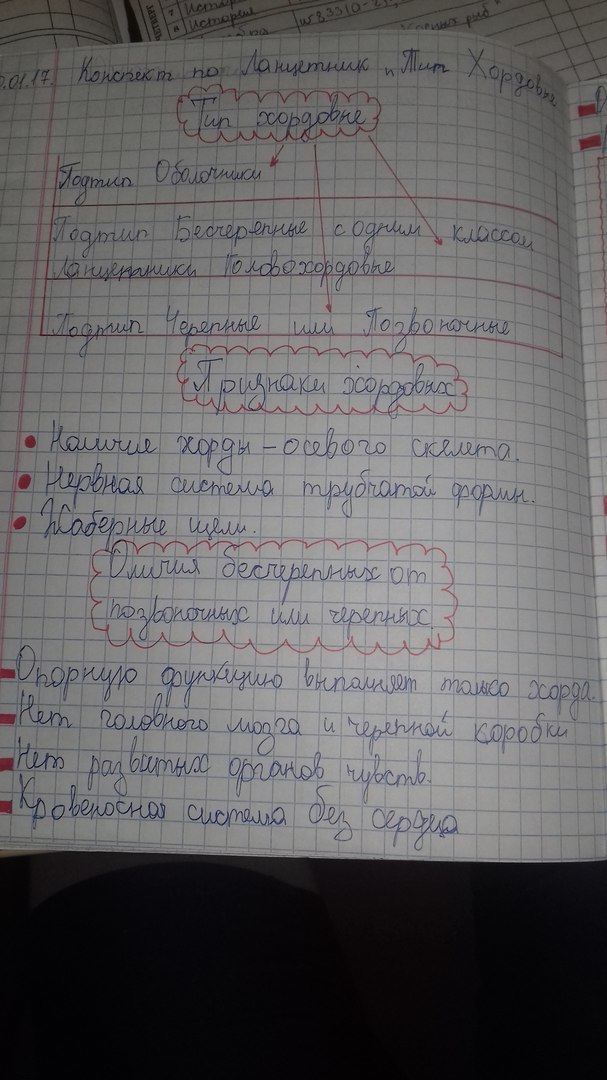 История
История
№ 3,33
рыб
.01.17. Конспект по Ланцетник и Тип Хордовые
Тип хордовые
Подтип Оболочники
Подтип Бесчерепные с одним классом
Ланцетники Головохордовые
Подтип Черепные или Позвоночные
Признаки хордовых
Наличие хорды - осевого скелета.
Нервная система трубчатой формы.
Жаберные щели.
Оличия бесчерепных от
позвоночных или черепных
Опорную функцию выполняет только хорда.
Нет головного мозга и черепной коробки
Нет развитых органов чувств.
Кровеносная система без сердца